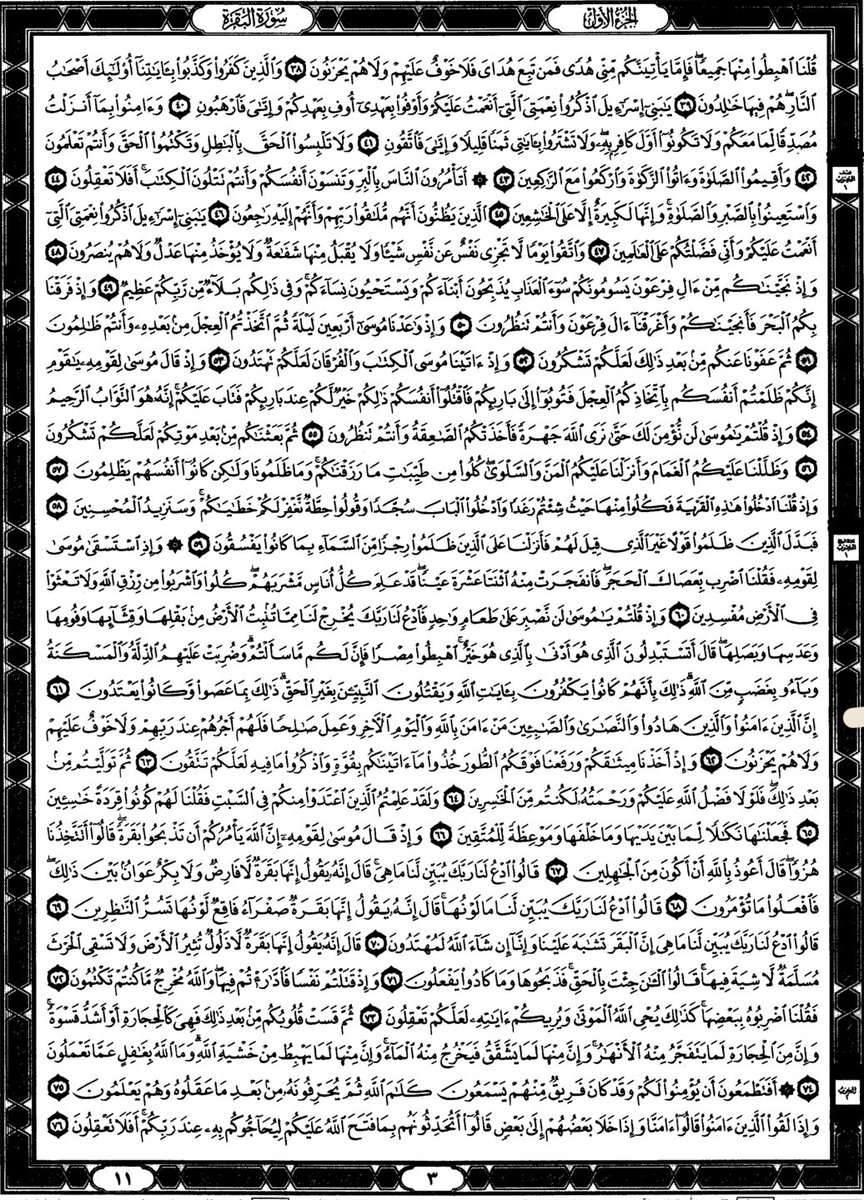 الجزء الأول
سورة البقرة
قُلْنَا ٱهْبِطُوا۟ مِنْهَا جَمِيعًا ۖ فَإِمَّا يَأْتِيَنَّكُم مِّنِّى هُدًى فَمَن تَبِعَ هُدَاىَ فَلَا خَوْفٌ عَلَيْهِمْ وَلَا هُمْ يَحْزَنُونَ ٣٨ وَٱلَّذِينَ كَفَرُوا۟ وَكَذَّبُوا۟ بِـَٔايَـٰتِنَآ أُو۟لَـٰٓئِكَ أَصْحَـٰبُ
ٱلنَّارِ ۖ هُمْ فِيهَا خَـٰلِدُونَ ٣٩ يَـٰبَنِىٓ إِسْرَٰٓءِيلَ ٱذْكُرُوا۟ نِعْمَتِىَ ٱلَّتِىٓ أَنْعَمْتُ عَلَيْكُمْ وَأَوْفُوا۟ بِعَهْدِىٓ أُوفِ بِعَهْدِكُمْ وَإِيَّـٰىَ فَٱرْهَبُونِ ٤٠ وَءَامِنُوا۟ بِمَآ أَنزَلْتُ
مُصَدِّقًا لِّمَا مَعَكُمْ وَلَا تَكُونُوٓا۟ أَوَّلَ كَافِرٍۭ بِهِۦ ۖ وَلَا تَشْتَرُوا۟ بِـَٔايَـٰتِى ثَمَنًا قَلِيلًا وَإِيَّـٰىَ فَٱتَّقُونِ ٤١ وَلَا تَلْبِسُوا۟ ٱلْحَقَّ بِٱلْبَـٰطِلِ وَتَكْتُمُوا۟ ٱلْحَقَّ وَأَنتُمْ تَعْلَمُونَ
٤٢ وَأَقِيمُوا۟ ٱلصَّلَوٰةَ وَءَاتُوا۟ ٱلزَّكَوٰةَ وَٱرْكَعُوا۟ مَعَ ٱلرَّٰكِعِينَ ٤٣ ۞ أَتَأْمُرُونَ ٱلنَّاسَ بِٱلْبِرِّ وَتَنسَوْنَ أَنفُسَكُمْ وَأَنتُمْ تَتْلُونَ ٱلْكِتَـٰبَ ۚ أَفَلَا تَعْقِلُونَ ٤٤
وَٱسْتَعِينُوا۟ بِٱلصَّبْرِ وَٱلصَّلَوٰةِ ۚ وَإِنَّهَا لَكَبِيرَةٌ إِلَّا عَلَى ٱلْخَـٰشِعِينَ ٤٥ ٱلَّذِينَ يَظُنُّونَ أَنَّهُم مُّلَـٰقُوا۟ رَبِّهِمْ وَأَنَّهُمْ إِلَيْهِ رَٰجِعُونَ ٤٦ يَـٰبَنِىٓ إِسْرَٰٓءِيلَ ٱذْكُرُوا۟ نِعْمَتِىَ ٱلَّتِىٓ
أَنْعَمْتُ عَلَيْكُمْ وَأَنِّى فَضَّلْتُكُمْ عَلَى ٱلْعَـٰلَمِينَ ٤٧ وَٱتَّقُوا۟ يَوْمًا لَّا تَجْزِى نَفْسٌ عَن نَّفْسٍ شَيْـًٔا وَلَا يُقْبَلُ مِنْهَا شَفَـٰعَةٌ وَلَا يُؤْخَذُ مِنْهَا عَدْلٌ وَلَا هُمْ يُنصَرُونَ ٤٨
وَإِذْ نَجَّيْنَـٰكُم مِّنْ ءَالِ فِرْعَوْنَ يَسُومُونَكُمْ سُوٓءَ ٱلْعَذَابِ يُذَبِّحُونَ أَبْنَآءَكُمْ وَيَسْتَحْيُونَ نِسَآءَكُمْ ۚ وَفِى ذَٰلِكُم بَلَآءٌ مِّن رَّبِّكُمْ عَظِيمٌ ٤٩ وَإِذْ فَرَقْنَا
بِكُمُ ٱلْبَحْرَ فَأَنجَيْنَـٰكُمْ وَأَغْرَقْنَآ ءَالَ فِرْعَوْنَ وَأَنتُمْ تَنظُرُونَ ٥٠ وَإِذْ وَٰعَدْنَا مُوسَىٰٓ أَرْبَعِينَ لَيْلَةً ثُمَّ ٱتَّخَذْتُمُ ٱلْعِجْلَ مِنۢ بَعْدِهِۦ وَأَنتُمْ ظَـٰلِمُونَ
٥١ ثُمَّ عَفَوْنَا عَنكُم مِّنۢ بَعْدِ ذَٰلِكَ لَعَلَّكُمْ تَشْكُرُونَ ٥٢ وَإِذْ ءَاتَيْنَا مُوسَى ٱلْكِتَـٰبَ وَٱلْفُرْقَانَ لَعَلَّكُمْ تَهْتَدُونَ ٥٣ وَإِذْ قَالَ مُوسَىٰ لِقَوْمِهِۦ يَـٰقَوْمِ
إِنَّكُمْ ظَلَمْتُمْ أَنفُسَكُم بِٱتِّخَاذِكُمُ ٱلْعِجْلَ فَتُوبُوٓا۟ إِلَىٰ بَارِئِكُمْ فَٱقْتُلُوٓا۟ أَنفُسَكُمْ ذَٰلِكُمْ خَيْرٌ لَّكُمْ عِندَ بَارِئِكُمْ فَتَابَ عَلَيْكُمْ ۚ إِنَّهُۥ هُوَ ٱلتَّوَّابُ ٱلرَّحِيمُ
٥٤ وَإِذْ قُلْتُمْ يَـٰمُوسَىٰ لَن نُّؤْمِنَ لَكَ حَتَّىٰ نَرَى ٱللَّهَ جَهْرَةً فَأَخَذَتْكُمُ ٱلصَّـٰعِقَةُ وَأَنتُمْ تَنظُرُونَ ٥٥ ثُمَّ بَعَثْنَـٰكُم مِّنۢ بَعْدِ مَوْتِكُمْ لَعَلَّكُمْ تَشْكُرُونَ
٥٦ وَظَلَّلْنَا عَلَيْكُمُ ٱلْغَمَامَ وَأَنزَلْنَا عَلَيْكُمُ ٱلْمَنَّ وَٱلسَّلْوَىٰ ۖ كُلُوا۟ مِن طَيِّبَـٰتِ مَا رَزَقْنَـٰكُمْ ۖ وَمَا ظَلَمُونَا وَلَـٰكِن كَانُوٓا۟ أَنفُسَهُمْ يَظْلِمُونَ ٥٧
وَإِذْ قُلْنَا ٱدْخُلُوا۟ هَـٰذِهِ ٱلْقَرْيَةَ فَكُلُوا۟ مِنْهَا حَيْثُ شِئْتُمْ رَغَدًا وَٱدْخُلُوا۟ ٱلْبَابَ سُجَّدًا وَقُولُوا۟ حِطَّةٌ نَّغْفِرْ لَكُمْ خَطَـٰيَـٰكُمْ ۚ وَسَنَزِيدُ ٱلْمُحْسِنِينَ ٥٨
فَبَدَّلَ ٱلَّذِينَ ظَلَمُوا۟ قَوْلًا غَيْرَ ٱلَّذِى قِيلَ لَهُمْ فَأَنزَلْنَا عَلَى ٱلَّذِينَ ظَلَمُوا۟ رِجْزًا مِّنَ ٱلسَّمَآءِ بِمَا كَانُوا۟ يَفْسُقُونَ ٥٩ ۞ وَإِذِ ٱسْتَسْقَىٰ مُوسَىٰ
لِقَوْمِهِۦ فَقُلْنَا ٱضْرِب بِّعَصَاكَ ٱلْحَجَرَ ۖ فَٱنفَجَرَتْ مِنْهُ ٱثْنَتَا عَشْرَةَ عَيْنًا ۖ قَدْ عَلِمَ كُلُّ أُنَاسٍ مَّشْرَبَهُمْ ۖ كُلُوا۟ وَٱشْرَبُوا۟ مِن رِّزْقِ ٱللَّهِ وَلَا تَعْثَوْا۟
فِى ٱلْأَرْضِ مُفْسِدِينَ ٦٠ وَإِذْ قُلْتُمْ يَـٰمُوسَىٰ لَن نَّصْبِرَ عَلَىٰ طَعَامٍ وَٰحِدٍ فَٱدْعُ لَنَا رَبَّكَ يُخْرِجْ لَنَا مِمَّا تُنۢبِتُ ٱلْأَرْضُ مِنۢ بَقْلِهَا وَقِثَّآئِهَا وَفُومِهَا
وَعَدَسِهَا وَبَصَلِهَا ۖ قَالَ أَتَسْتَبْدِلُونَ ٱلَّذِى هُوَ أَدْنَىٰ بِٱلَّذِى هُوَ خَيْرٌ ۚ ٱهْبِطُوا۟ مِصْرًا فَإِنَّ لَكُم مَّا سَأَلْتُمْ ۗ وَضُرِبَتْ عَلَيْهِمُ ٱلذِّلَّةُ وَٱلْمَسْكَنَةُ
وَبَآءُو بِغَضَبٍ مِّنَ ٱللَّهِ ۗ ذَٰلِكَ بِأَنَّهُمْ كَانُوا۟ يَكْفُرُونَ بِـَٔايَـٰتِ ٱللَّهِ وَيَقْتُلُونَ ٱلنَّبِيِّـۧنَ بِغَيْرِ ٱلْحَقِّ ۗ ذَٰلِكَ بِمَا عَصَوا۟ وَّكَانُوا۟ يَعْتَدُونَ ٦١
إِنَّ ٱلَّذِينَ ءَامَنُوا۟ وَٱلَّذِينَ هَادُوا۟ وَٱلنَّصَـٰرَىٰ وَٱلصَّـٰبِـِٔينَ مَنْ ءَامَنَ بِٱللَّهِ وَٱلْيَوْمِ ٱلْـَٔاخِرِ وَعَمِلَ صَـٰلِحًا فَلَهُمْ أَجْرُهُمْ عِندَ رَبِّهِمْ وَلَا خَوْفٌ عَلَيْهِمْ
وَلَا هُمْ يَحْزَنُونَ ٦٢ وَإِذْ أَخَذْنَا مِيثَـٰقَكُمْ وَرَفَعْنَا فَوْقَكُمُ ٱلطُّورَ خُذُوا۟ مَآ ءَاتَيْنَـٰكُم بِقُوَّةٍ وَٱذْكُرُوا۟ مَا فِيهِ لَعَلَّكُمْ تَتَّقُونَ ٦٣ ثُمَّ تَوَلَّيْتُم مِّنۢ
بَعْدِ ذَٰلِكَ ۖ فَلَوْلَا فَضْلُ ٱللَّهِ عَلَيْكُمْ وَرَحْمَتُهُۥ لَكُنتُم مِّنَ ٱلْخَـٰسِرِينَ ٦٤ وَلَقَدْ عَلِمْتُمُ ٱلَّذِينَ ٱعْتَدَوْا۟ مِنكُمْ فِى ٱلسَّبْتِ فَقُلْنَا لَهُمْ كُونُوا۟ قِرَدَةً خَـٰسِـِٔينَ
٦٥ فَجَعَلْنَـٰهَا نَكَـٰلًا لِّمَا بَيْنَ يَدَيْهَا وَمَا خَلْفَهَا وَمَوْعِظَةً لِّلْمُتَّقِينَ ٦٦ وَإِذْ قَالَ مُوسَىٰ لِقَوْمِهِۦٓ إِنَّ ٱللَّهَ يَأْمُرُكُمْ أَن تَذْبَحُوا۟ بَقَرَةً ۖ قَالُوٓا۟ أَتَتَّخِذُنَا
هُزُوًا ۖ قَالَ أَعُوذُ بِٱللَّهِ أَنْ أَكُونَ مِنَ ٱلْجَـٰهِلِينَ ٦٧ قَالُوا۟ ٱدْعُ لَنَا رَبَّكَ يُبَيِّن لَّنَا مَا هِىَ ۚ قَالَ إِنَّهُۥ يَقُولُ إِنَّهَا بَقَرَةٌ لَّا فَارِضٌ وَلَا بِكْرٌ عَوَانٌۢ بَيْنَ ذَٰلِكَ ۖ
فَٱفْعَلُوا۟ مَا تُؤْمَرُونَ ٦٨ قَالُوا۟ ٱدْعُ لَنَا رَبَّكَ يُبَيِّن لَّنَا مَا لَوْنُهَا ۚ قَالَ إِنَّهُۥ يَقُولُ إِنَّهَا بَقَرَةٌ صَفْرَآءُ فَاقِعٌ لَّوْنُهَا تَسُرُّ ٱلنَّـٰظِرِينَ ٦٩
قَالُوا۟ ٱدْعُ لَنَا رَبَّكَ يُبَيِّن لَّنَا مَا هِىَ إِنَّ ٱلْبَقَرَ تَشَـٰبَهَ عَلَيْنَا وَإِنَّآ إِن شَآءَ ٱللَّهُ لَمُهْتَدُونَ ٧٠ قَالَ إِنَّهُۥ يَقُولُ إِنَّهَا بَقَرَةٌ لَّا ذَلُولٌ تُثِيرُ ٱلْأَرْضَ وَلَا تَسْقِى ٱلْحَرْثَ
مُسَلَّمَةٌ لَّا شِيَةَ فِيهَا ۚ قَالُوا۟ ٱلْـَٔـٰنَ جِئْتَ بِٱلْحَقِّ ۚ فَذَبَحُوهَا وَمَا كَادُوا۟ يَفْعَلُونَ ٧١ وَإِذْ قَتَلْتُمْ نَفْسًا فَٱدَّٰرَْٰٔتُمْ فِيهَا ۖ وَٱللَّهُ مُخْرِجٌ مَّا كُنتُمْ تَكْتُمُونَ ٧٢
فَقُلْنَا ٱضْرِبُوهُ بِبَعْضِهَا ۚ كَذَٰلِكَ يُحْىِ ٱللَّهُ ٱلْمَوْتَىٰ وَيُرِيكُمْ ءَايَـٰتِهِۦ لَعَلَّكُمْ تَعْقِلُونَ ٧٣ ثُمَّ قَسَتْ قُلُوبُكُم مِّنۢ بَعْدِ ذَٰلِكَ فَهِىَ كَٱلْحِجَارَةِ أَوْ أَشَدُّ قَسْوَةً ۚ
وَإِنَّ مِنَ ٱلْحِجَارَةِ لَمَا يَتَفَجَّرُ مِنْهُ ٱلْأَنْهَـٰرُ ۚ وَإِنَّ مِنْهَا لَمَا يَشَّقَّقُ فَيَخْرُجُ مِنْهُ ٱلْمَآءُ ۚ وَإِنَّ مِنْهَا لَمَا يَهْبِطُ مِنْ خَشْيَةِ ٱللَّهِ ۗ وَمَا ٱللَّهُ بِغَـٰفِلٍ عَمَّا تَعْمَلُونَ
٧٤ ۞ أَفَتَطْمَعُونَ أَن يُؤْمِنُوا۟ لَكُمْ وَقَدْ كَانَ فَرِيقٌ مِّنْهُمْ يَسْمَعُونَ كَلَـٰمَ ٱللَّهِ ثُمَّ يُحَرِّفُونَهُۥ مِنۢ بَعْدِ مَا عَقَلُوهُ وَهُمْ يَعْلَمُونَ ٧٥
وَإِذَا لَقُوا۟ ٱلَّذِينَ ءَامَنُوا۟ قَالُوٓا۟ ءَامَنَّا وَإِذَا خَلَا بَعْضُهُمْ إِلَىٰ بَعْضٍ قَالُوٓا۟ أَتُحَدِّثُونَهُم بِمَا فَتَحَ ٱللَّهُ عَلَيْكُمْ لِيُحَآجُّوكُم بِهِۦ عِندَ رَبِّكُمْ ۚ أَفَلَا تَعْقِلُونَ ٧٦
٣
١١